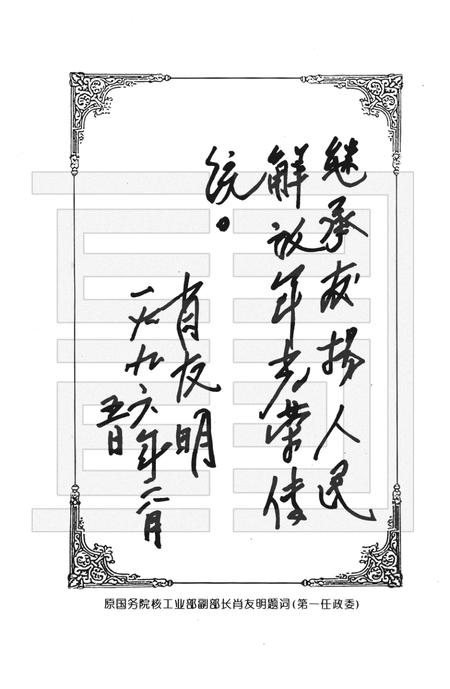 继承发扬人民
解放军光荣传
统。
肖友明
一九九六年二月
五日
原国务院核工业部副部长肖友明题词(第一任政委)